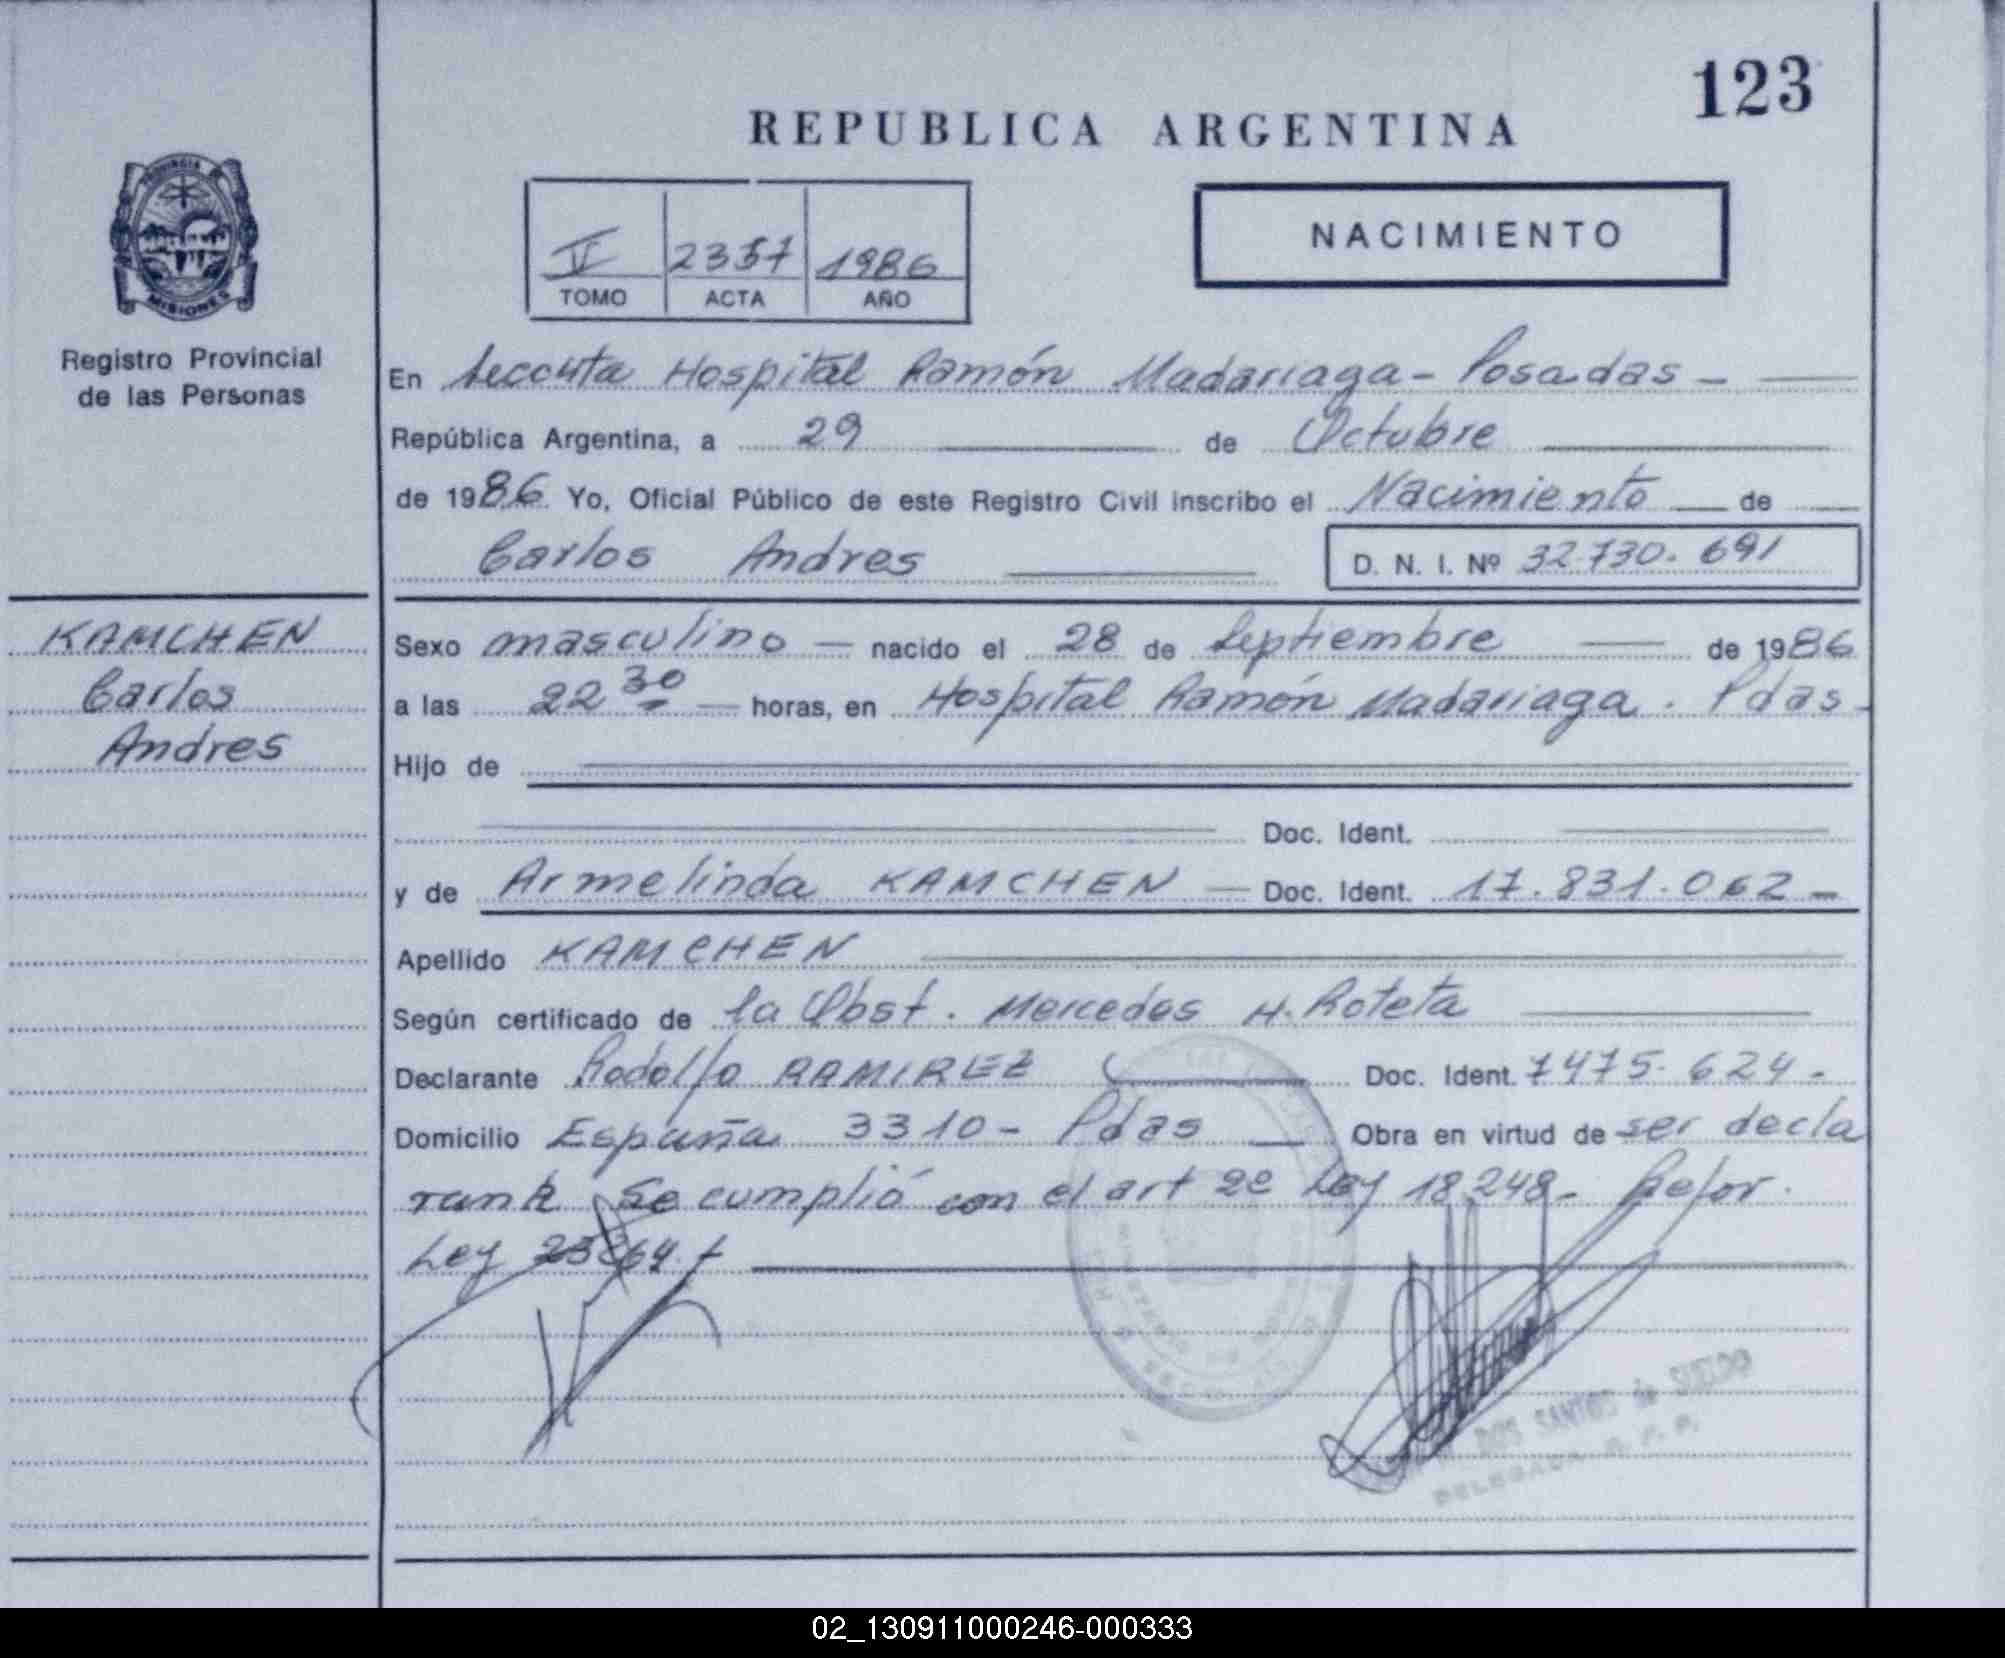 123
REPUBLICA ARGENTINA
PROVINCIA
MISIONES
Registro Provincial
de las Personas
2357 1986
TOMO ACTA AÑO
NACIMIENTO
En Seccuta Hospital Ramón Madariaga - Posadas -
República Argentina, a 29 de Octubre
de 1986. Yo, Oficial Público de este Registro Civil inscribo el Nacimiento de
Carlos Andres D. N. I. Nº 32.730.691
KAMCHEN
Carlos
Andres
Sexo masculino - nacido el 28 de Septiembre de 1986
a las 22 30 - horas, en Hospital Ramón Madariaga. Pdas -
Hijo de
Doc. Ident.
y de Armelinda KAMCHEN - Doc. Ident. 17.831.062 -
Apellido KAMCHEN
Según certificado de la Obst. Mercedes H. Roteta
Declarante Rodolfo RAMIREZ Doc. Ident. 7475.624.
Domicilio España 3310 - Pdas Obra en virtud de ser decla
rante Se cumplió con el art 2º Ley 18.248. Refor.
Ley
DOS SANTOS de SUELDO
DELEGADA R. P. P.
02_130911000246-000333